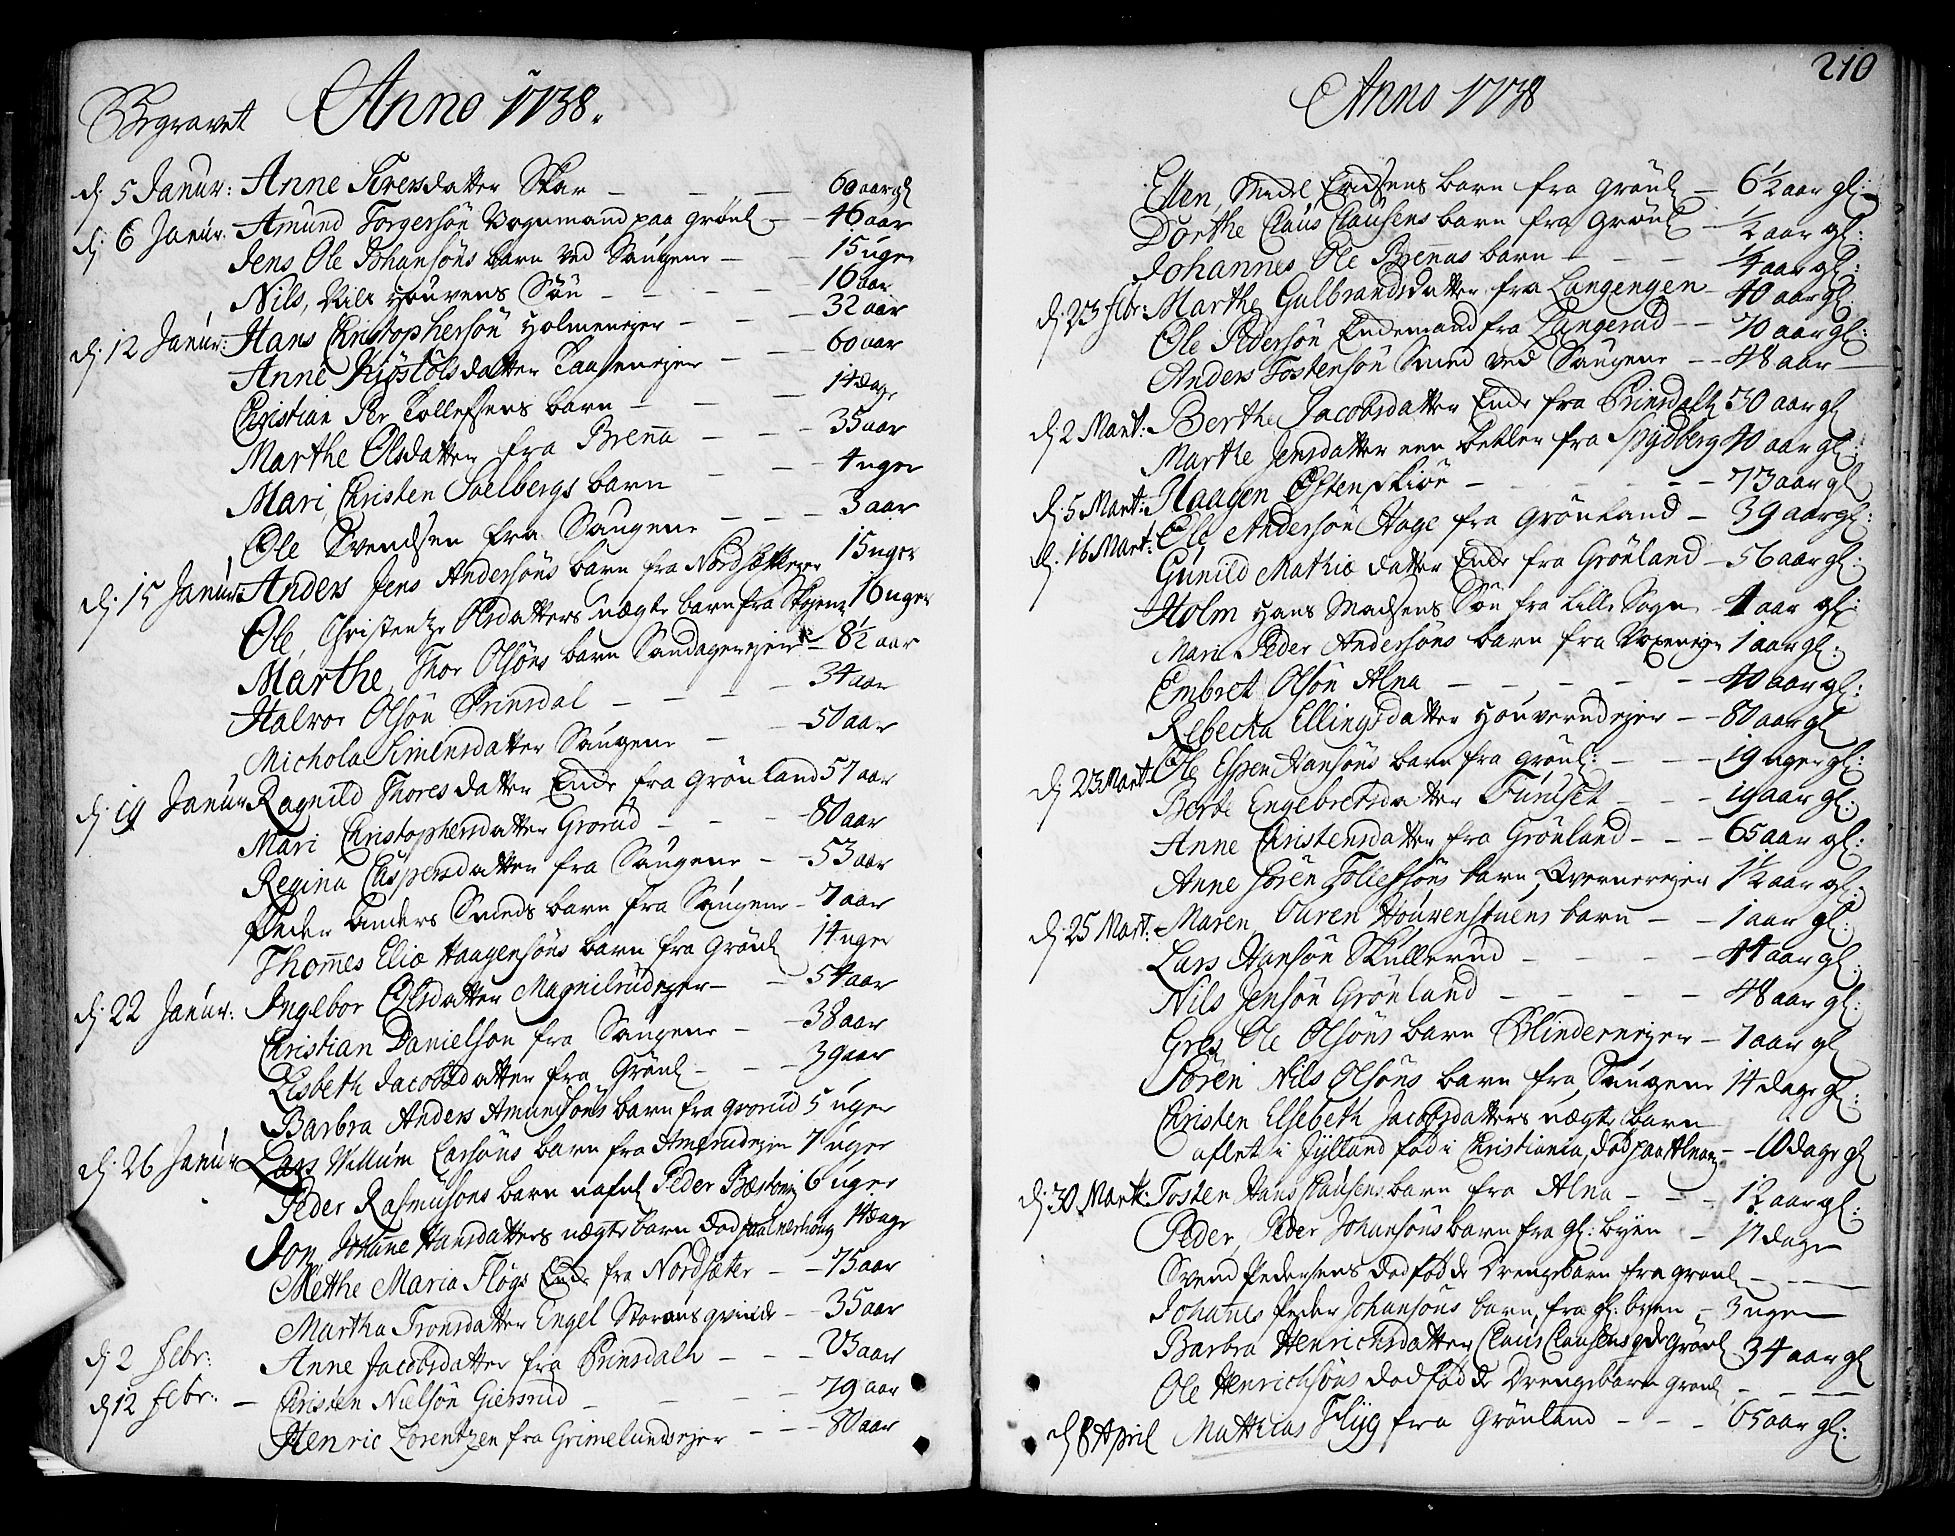 Begravet Anno 1738.
d: 5 Janur: Anne Iversdatter Skar - - - 60 aar gl
d: 6 Janur. Amund Torgersøn Vognmand paa Grønl - - 46 aar
Jens, Ole Johansøns barn ved Saugene - - 15 uger
Nils, Nils Houvens Søn - - - - 16 aar
d: 12 Janur: Hans Christophersøn Holmenejer - - - 32 aar
Anne Kiøstølsdatter Taasenejer - - - 60 aar
Christian Per Tollefsens barn - - - 14 dage
Marthe Olsdatter fra Brenna - - - 35 aar
Mari, Christen Soelbergs barn - - 4 uger
Ole Svendsen fra Saugene - - - 3 aar
d: 15 Janur: Anders Jens Andersøns barn fra Nordsætterejer 15 uger
Ole, Christentze Olsdatters uægte barn fra Skøjen 16 uger
Marthe, Thor Olsøns barn Sandagerejer - 8½ aar
Halvor Olsøn Prinsdal - - - 34 aar
Michola Simensdatter Saugene - - 50 aar
d: 19 Janur Ragnild Thoresdatter Enke fra Grønland 57 aar
Mari Christophersdatter Grorud - - - 80 aar
Regina Caspersdatter fra Saugene - - 53 aar
Peder Anders Smeds barn fra Saugene - 7 aar
Thom̄es Eliæ Haagensøns barn fra Grønl 14 uger
d: 22 Janur: Ingebor Olsdatter Magnilrudejer - - 54 aar
Christian Danielsøn fra Saugene - - 38 aar
Lisbeth Jacobsdatter fra Grønl - - - 39 aar
Barbra Anders Amunsøns barn fra Grorud 5 uger
d: 26 Janur Lars Willum Larsøns barn fra Amerudejer 7 uger
Peder Rasmusøns barn Peder 6 uger
Jon, Johan̄e Hansdatters uægte barn død 14 dage
Metthe Maria Fløgs Enke fra Nordsæter - - 75 aar
Martha Tronsdatter Engel Storans qvinde - - 35 aar
d 2 Febr: Anne Jacobsdatter fra Prinsdalen - - - 23 aar
d 12 Febr: - Christen Nielsøn Giersrud - - - 79 aar
Henric Lorentzen fra Grimelundsejer - - - 80 aar
210
Anno 1738
Ellen, Madz Ericksens barn fra Grønl - 6½ aar gl:
Dorthe Claus Clausens barn fra Grønl - ½ aar gl:
Johannes Ole Bren̄as barn - - - - ¼ aar gl:
d: 23 Febr: Marthe Gulbrandsdatter fra Langengen - 40 aar gl:
Ole Pedersøn Enkemand fra Langerud - - 70 aar gl:
Anders Tostensøn Smed ved Saugene - - 48 aar -
d: 2 Mart: Berthe Jacobsdatter Enke fra Prinsdalen 50 aar gl
Marthe Jensdatter een betler fra Spydberg 40 aar gl:
d: 5 Mart: Haagen Østenskiøn - - - - - - 73 aar gl
d. 16 Mart: Ole Andersøn Hage fra Grønland - 39 aar gl:
Gunild Mathiæ datter Enke fra Grønland - 56 aar gl:
Holm Hans Madsens Søn fra Lille Sogn - 4 aar gl:
Mari Peder Andersøns barn fra Voxenejer 1 aar gl:
Embret Olsøn Alna - - - - - - 40 aar gl:
Rebecka Ellingsdatter Houverudejer - - 80 aar gl
d 23 Mart Ole Espen Hansøns barn fra Grønl: - - - 19 uger gl:
Berte Engebretsdatter Furuset - - - 19 aar gl:
Anne Christensdatter fra Grønland - - - 65 aar gl:
Anne Søren Tollefsøns barn Qvernerejer 1½ aar gl:
d: 25 Mart. - Maren Ouren Houvenstuens barn - - 1 aar gl:
Lars Hansøn Skullerud - - - - - 44 aar gl:
Nils Jensøn Grønland - - - - - 48 aar gl:
Gros Ole Olsøns barn Blindernejer - 7 aar gl
Søren Nils Olsøns barn fra Saugene 14 dage gl:
Christen Elsebeth Jacobsdatters uægte barn
aflet i Jylland fød i Christiania, død paa Alna - 10 dage gl
d: 30 Mart: Tosten Hans Clausens barn fra Alna - - - 1½ aar gl:
Peder, Peder Johansøns barn fra gl: byen - 17 dage
Svend Pedersens dødfødde Drengebarn fra Grønl - - -
Johan̄es Peder Johansøns barn, fra gl: byen - 3 uger
Barbra Henrichsdatter Claus Clausens qde Grønl 34 aar gl
Ole Henrichsøns dødfødde Drengebarn Grønl - - -
d 8 April Matthias Flyg fra Grønland - - - 65 aar gl: